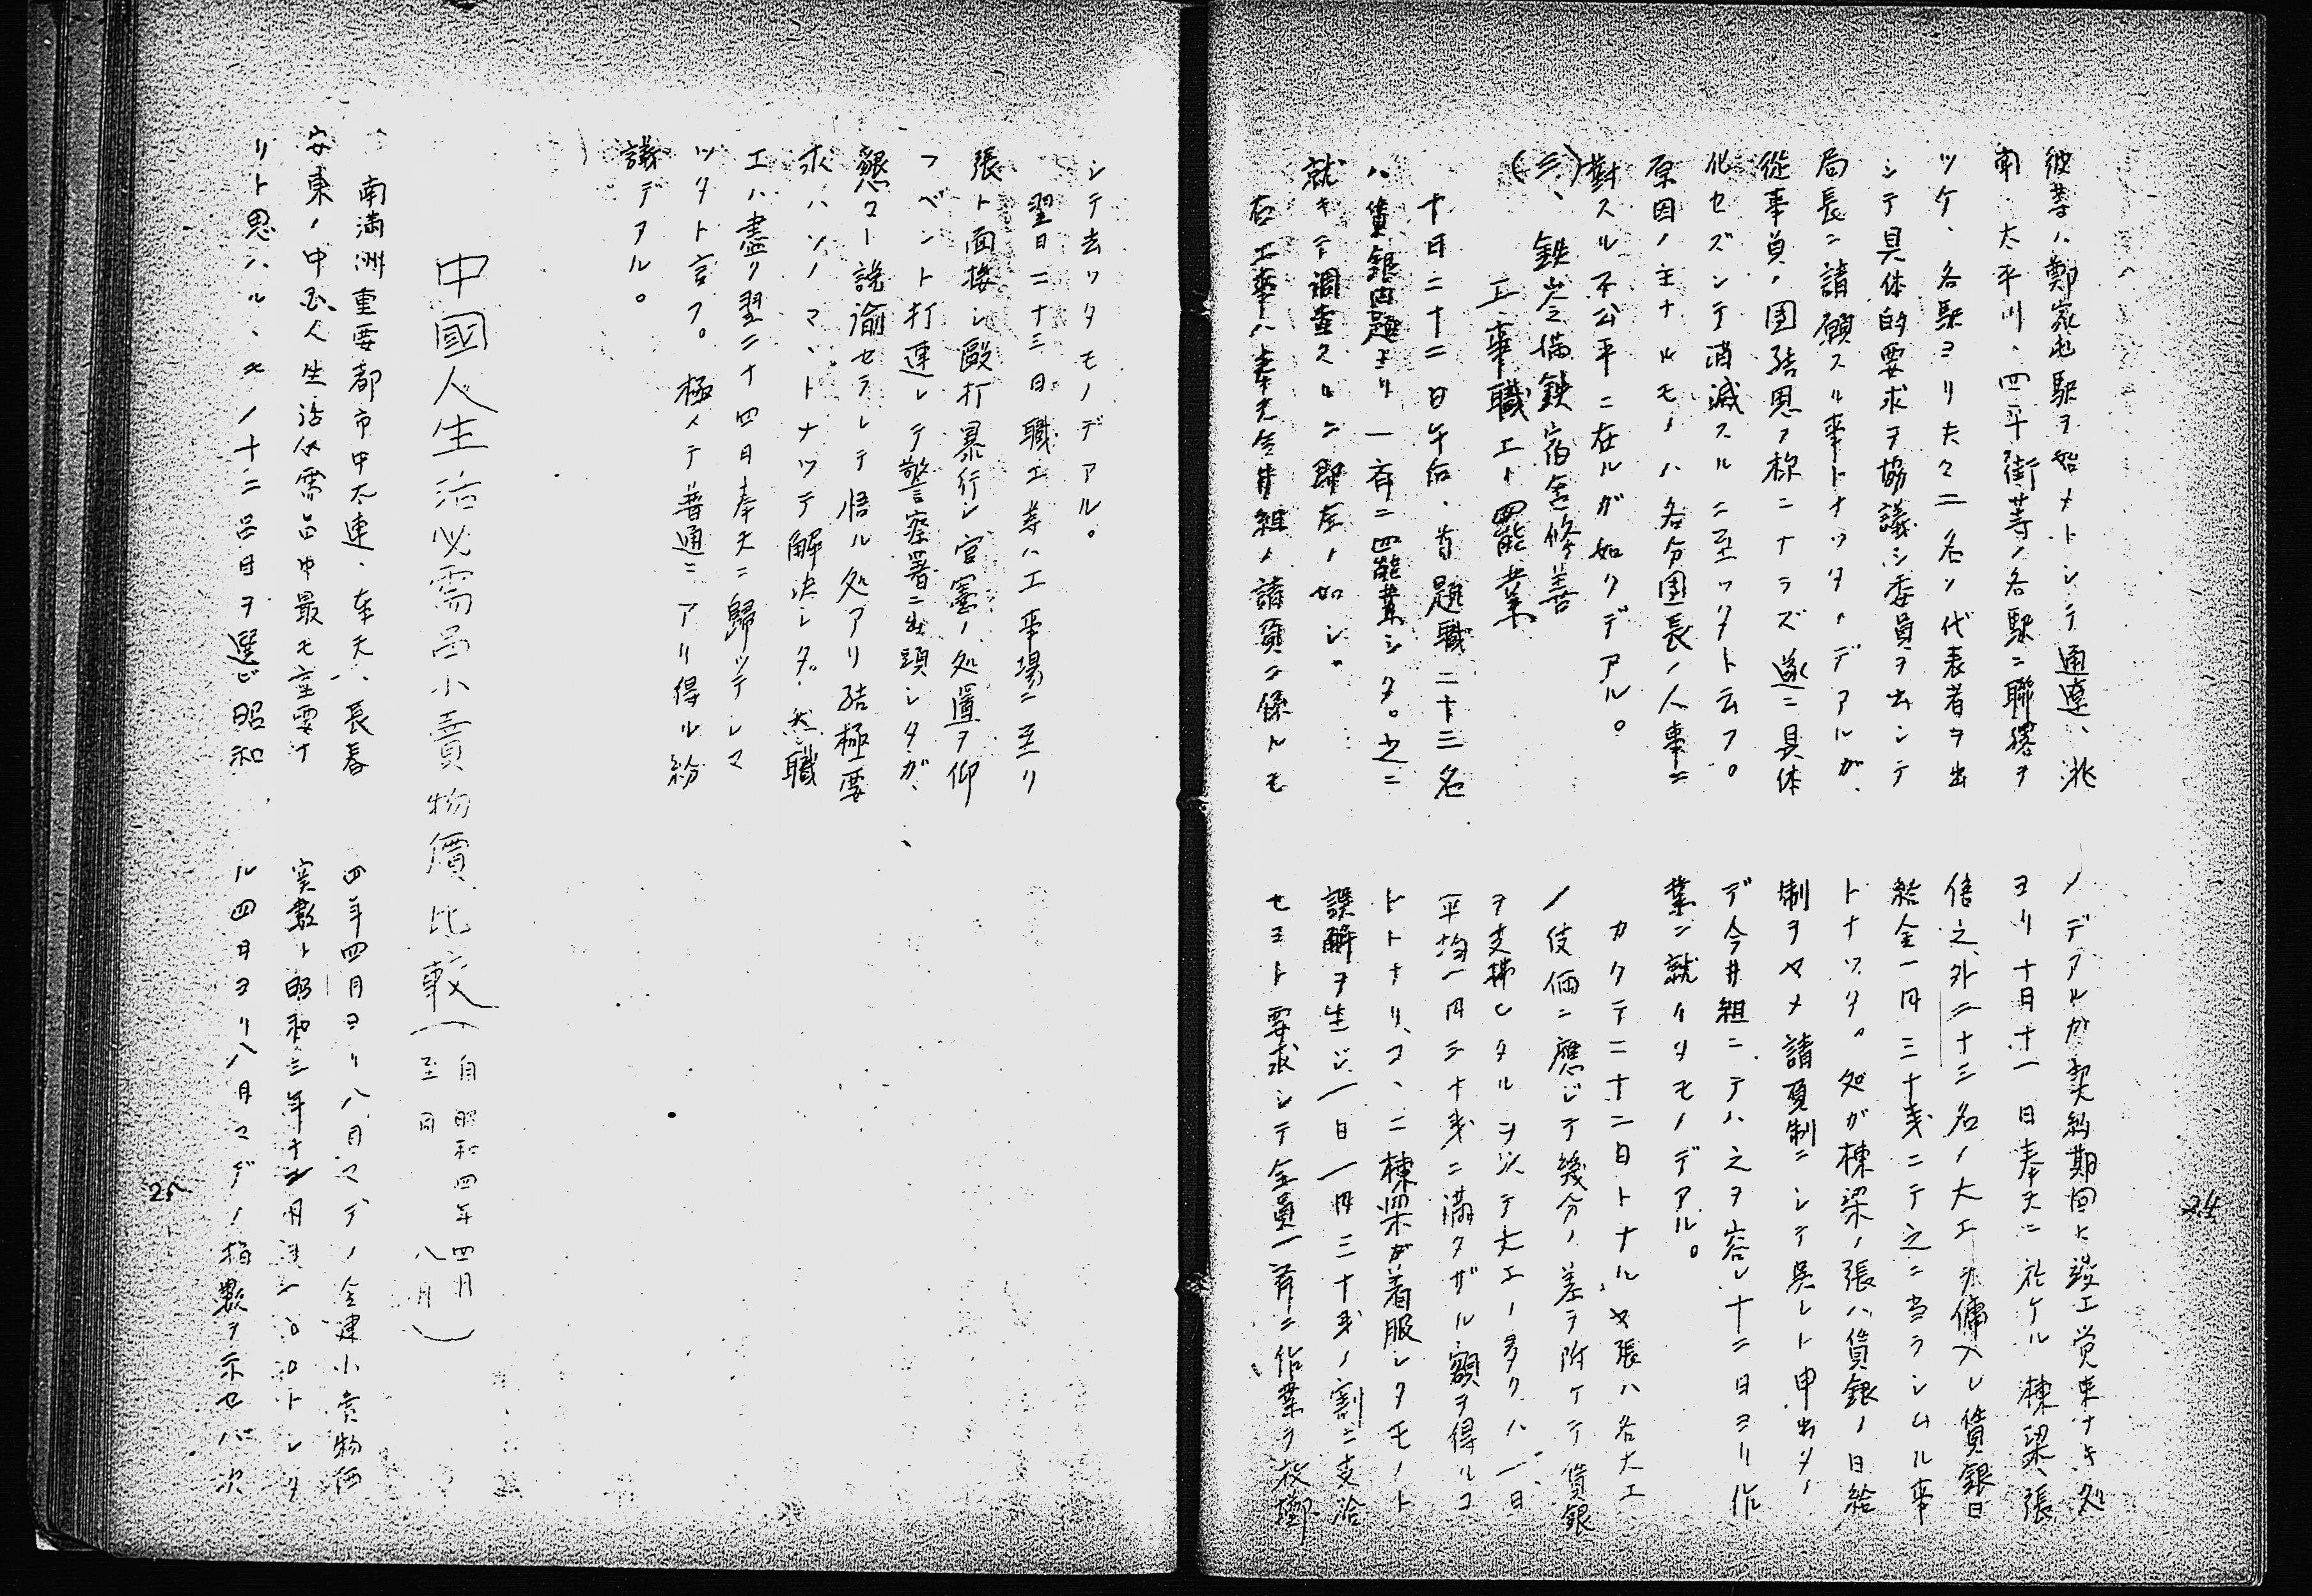 彼等ハ鄭家屯駅ヲ始メトシテ通遼、洮
南、太平川、四平街等ノ各駅ニ聯絡ヲ
ツケ、各駅ヨリ夫々二名ノ代表者ヲ出
シテ具体的要求ヲ協議シ委員ヲ出シテ
局長ニ請願スル事トナツタノデアルガ
従事員ノ団結思フ称ニナラズ遂ニ具体
化セズシテ消滅スルニ至ツタト云フ。
原因ノ主ナルモノハ各分団長ノ人事ニ
対スル不公平ニ在ルガ如クデアル。
(三)、鉄嶺満鉄宿舎修善
工事職工ノ罷業
十月二十二日午后、首題職工二十三名
ハ賃銀問題ヨリ一斉ニ罷業シタ。之ニ
就キテ調査スルニ即左ノ如シ。
右工事ハ奉天今井組ノ請負ニ係ルモ
ノデアルガ契約期間ニ竣工覚束ナキ処
ヨリ十月十一日奉天ニ於ケル棟梁、張
信之外二十三名ノ大工ヲ傭入レ賃銀日
給金一円三十戔ニテ之ニ当ラシムル事
トナツタ。処ガ棟梁ノ張ハ賃銀ノ日給
制ヲヤメ請負制ニシテ呉レト申出タノ
デ今井組ニテハ之ヲ容レ十二日ヨリ作
業ニ就リタモノデアル。
カクテ二十二日トナルヤ張ハ各大工
ノ伎倆ニ應ジテ幾分ノ差ヲ附ケテ賃銀
ヲ支拂ヒタルヲ以テ大工ノ多クハ一日
平均一円三十戔ニ満タザル額ヲ得ルコ
トトナリ、コハ棟梁ガ着服シタモノト
誤解ヲ生ジ一日一円三十戔ノ割ニ支給
セヨト要求シテ全員一斉ニ作業ヲ放擲
24
シテ去ツタモノデアル。
翌日二十三日職工等ハ工事場ニ至リ
張ト面接シ毆打暴行シ官憲ノ処置ヲ仰
フベント打連レテ警察署ニ出頭シタガ、
懇コー説諭セラレテ悟ル処アリ結極要
求ハソノマヽトナツテ解決シタ。然シ職
工ハ盡ク翌二十四日奉天ニ歸ツテシマ
ツタト言フ。極メテ普通ニアリ得ル紛
議デアル。
中國人生活必需品小賣物價比較（自昭和四年四月
至同八月）
南満洲重要都市中大連、奉天、長春
安東ノ中国人生活必需品中最モ重要ナ
リト思ハルヽモノ十二品目ヲ選ビ昭和
四年四月ヨリ八月マデノ金建小賣物価
実数ト昭和三年十二月ヲ一〇〇トシタ
ル四月ヨリ八月マデノ指数ヲ示セバ次
25